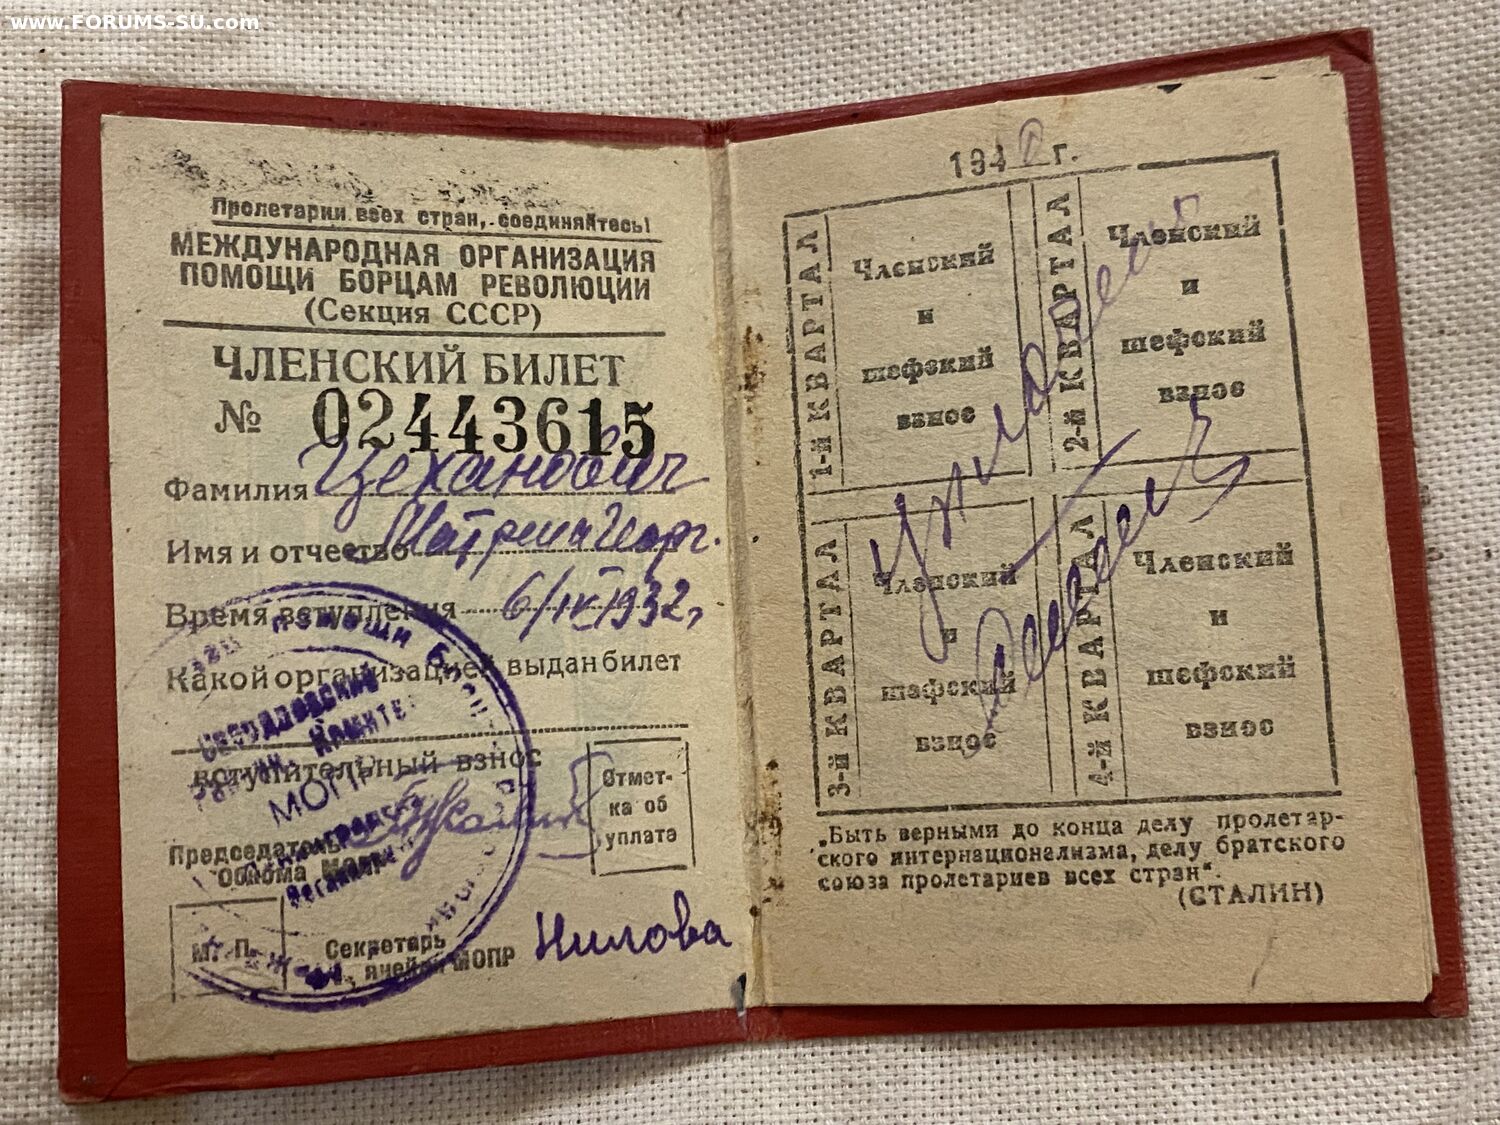 www.FORUMS-SU.com
Пролетарии всех стран, соединяйтесь!
МЕЖДУНАРОДНАЯ ОРГАНИЗАЦИЯ
ПОМОЩИ БОРЦАМ РЕВОЛЮЦИИ
(Секция СССР)
ЧЛЕНСКИЙ БИЛЕТ
№ 02443615
Фамилия Цеханович
Имя и отчество Матрена Георг.
Время вступления 6/IV 1932 г
Какой организацией выдан билет
Свердловский
Комитет
МОПР
Вступительный взнос
Отмет-
ка об
уплате
Председатель
Обкома МОПР
М. П.
Секретарь
ячейки МОПР Нилова
194 г.
1-й КВАРТАЛ
Членский
и
шефский
взнос
2-й КВАРТАЛ
Членский
и
шефский
взнос
3-й КВАРТАЛ
Членский
и
шефский
взнос
4-й КВАРТАЛ
Членский
и
шефский
взнос
„Быть верными до конца делу пролетар-
ского интернационализма, делу братского
союза пролетариев всех стран“.
(СТАЛИН)